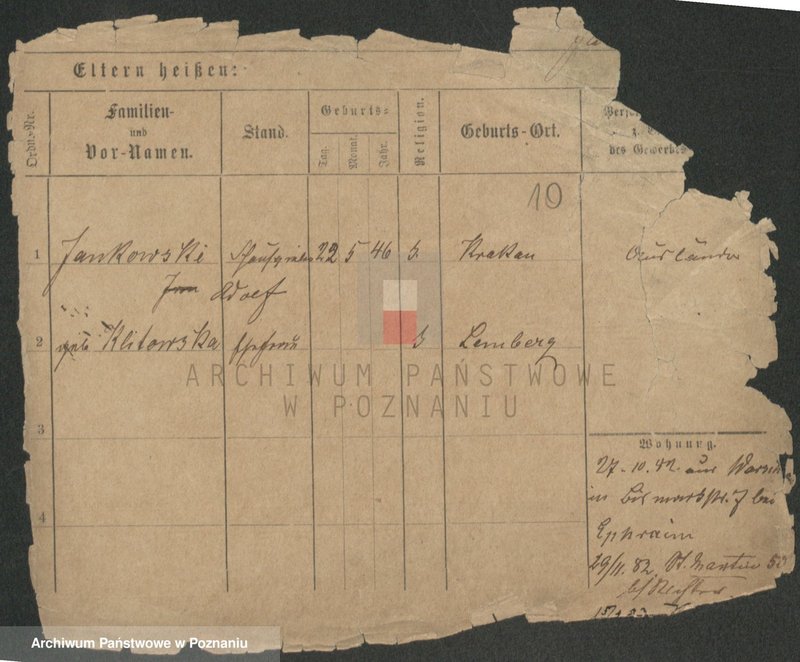 Eltern heißen:
Ordns-Nr.
Familien-
und
Vor-Namen.
Stand.
Geburts-
Tag.
Monat.
Jahr.
Religion.
Geburts-Ort.
des Gewerbes
10
1 Jankowski Schauspieler 22 5 46 Krakau Ausländer
Adolf
2 geb Klitowska Ehefrau Lemberg
3
4
Wohnung.
27-10.82 aus
in Bismarckstr. 7 bei
Ephraim
29/11.82 St. Martin
ARCHIWUM PAŃSTWOWE
W POZNANIU
Archiwum Państwowe w Poznaniu